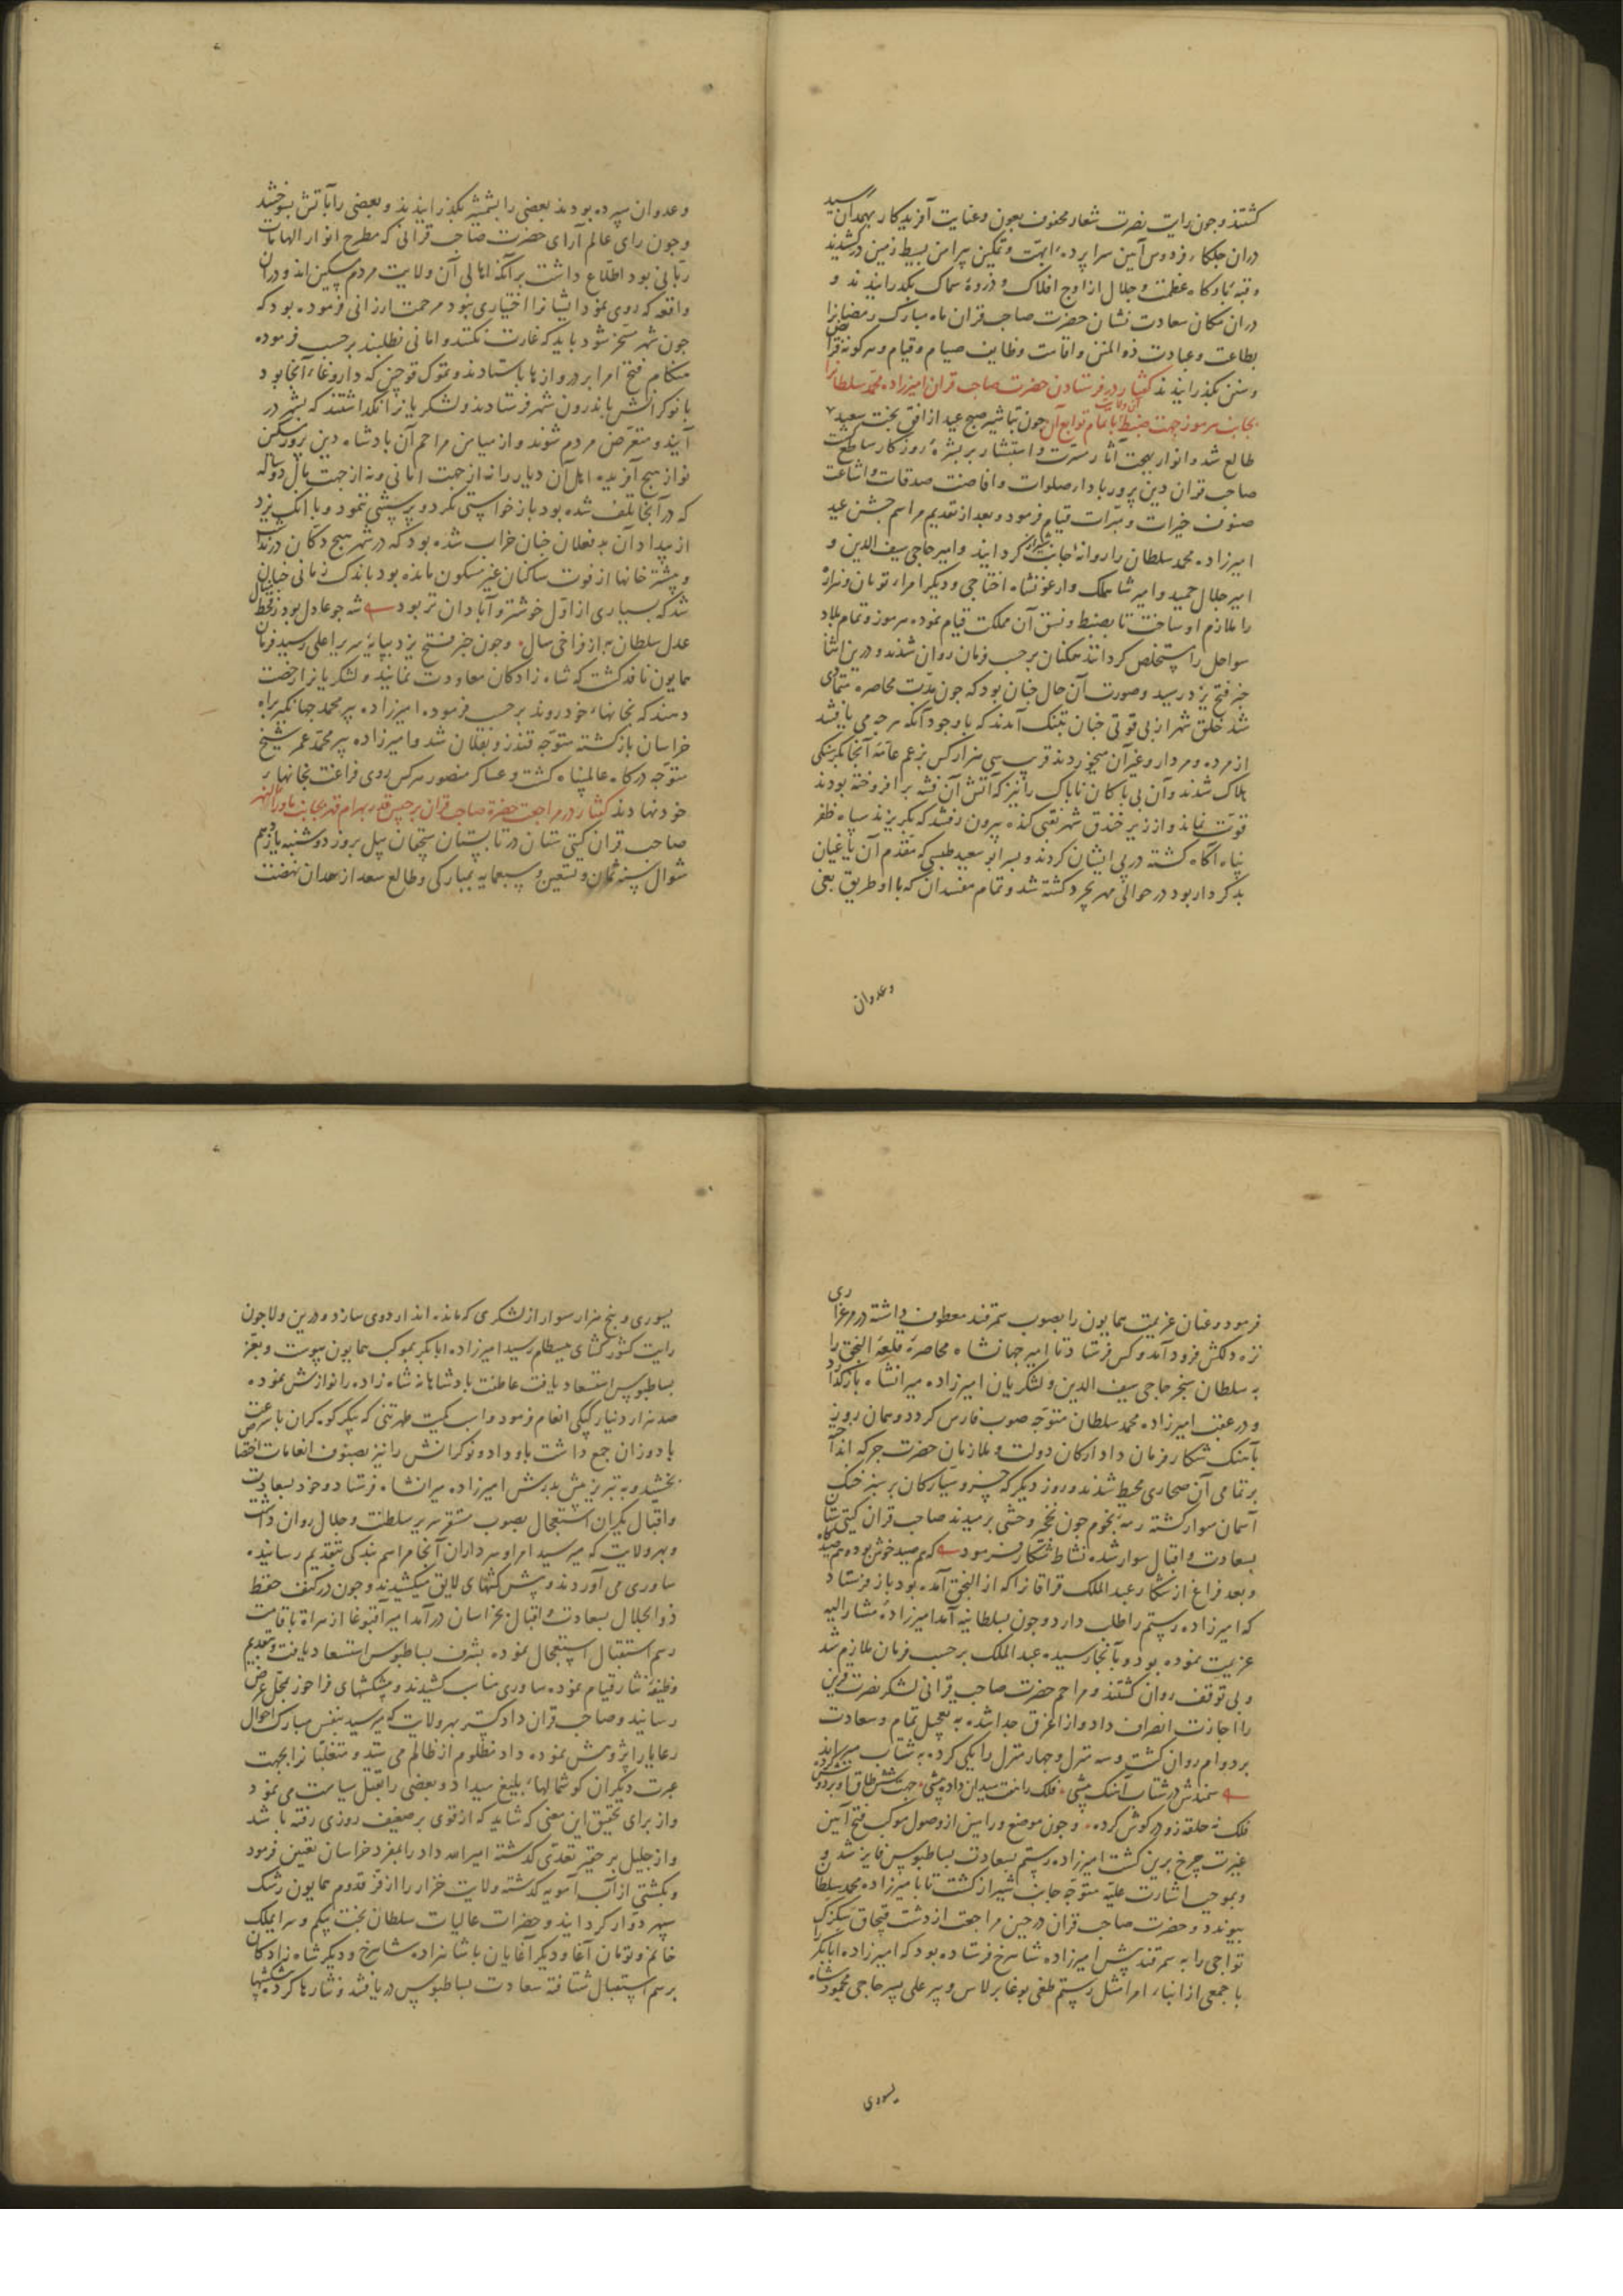 کشتند و جون رایت نصرت شعار محفوف بعون و عنایت آفریدکار بهمدان رسید
دران جلکاء فردوس آیین سراپردهٔ ابهت و تمکین پیرامن بسیط زمین درکشیدند
و قبهٔ بارکاه عظمت و جلال از اوج افلاک و ذروهٔ سماک بکذرانیدند و
دران مکان سعادت نشان حضرت صاحب قران ماه مبارک رمضانرا
بطاعت و عبادت ذو المنن و اقامت وظایف صیام و قیام و هر کونه فرایض
و سنن بکذرانیدند کفتار در فرستادن حضرت صاحب قران امیرزاده محمد سلطانرا
بجانب هرموز جهت ضبط آن ولایت با تمام توابع آن جون تباشیر صبح عید از افق بخت سعید
طالع شد و انوار بهجت آثار مسرت و استبشار بر بشرهٔ روزکار ساطع کشت
صاحب قران دین پرور باداء صلوات و افاضت صدقات و اشاعت
صنوف خیرات و مبرات قیام فرمود و بعد از تقدیم مراسم جشن عید
امیرزاده محمد سلطان را روانهٔ جانب شیراز کردانید و امیر حاجی سیف الدین و
امیر جلال حمید و امیر شاه ملک و ارغونشاه اختاجی و دیکر امراء تومان و هزاره
را ملازم او ساخت تا بضبط و نسق آن مملکت قیام نموده هرموز و تمام بلاد
سواحل را مستخلص کردانند همکنان برحسب فرمان روان شدند و درین اثنا
خبر فتح یزد رسید و صورت آن حال جنان بود که جون مدت محاصره متمادی
شد خلق شهر از بی قوتی جنان بتنک آمدند که با وجود آنکه هرجه می یافتند
از مرده و مردار و غیر آن میخوردند قریب سی هزار کس بزعم عامهٔ آنجا بکرسنکی
هلاک شدند و آن بی باکان ناپاک را نیز که آتش آن فتنه برافروخته بودند
قوت نماند و از زیر خندق شهر نقبی کنده بیرون رفتند که بکریزند سپاه ظفر
پناه آکاه کشته در پی ایشان کردند و پسر ابو سعید طبسی که مقدم آن یاغیان
بدکردار بود در حوالی مهریجرد کشته شد و تمام مفسدان که با او طریق بغی
وعدوان
و عدوان سپرده بودند بعضی را بشمشیر بکذرانیدند و بعضی را بآتش بسوختند
و جون رای عالم آرای حضرت صاحب قرانی که مطرح انوار الهامات
ربانی بود اطلاع داشت برآنکه اهالی آن ولایت مردم مسکین اند و دران
واقعه که روی نمود ایشانرا اختیاری نبود مرحمت ارزانی فرموده بود که
جون شهر مسخر شود باید که غارت نکنند و امانی نطلبند برحسب فرموده
هنکام فتح امرا بر دروازها باستادند و تموک قوجین که داروغاء آنجا بود
با نوکرانش باندرون شهر فرستادند و لشکریانرا نکذاشتند که بشهر در
آیند و متعرض مردم شوند و از میامن مراحم آن بادشاه دین پرور مسکین
نواز هیج آفریده اهل آن دیار را نه از جهت امانی و نه از جهت مال دو ساله
که در آنجا تلف شده بود بازخواستی نکرد و پرسشی ننمود و با انک یزد
از بیداد آن بد فعلان جنان خراب شده بود که در شهر هیج دکان در نداشت
و بیشتر خانها از فوت ساکنان غیر مسکون مانده بود باندک زمانی جنان
شد که بسیاری از اول خوشتر و آبادان تر بود شه جو عادل بود ز قحط منال
عدل سلطان به از فراخی سال و جون خبر فتح یزد بپایهٔ سریر اعلی رسید فرمان
همایون نافذ کشت که شاه زادکان معاودت نمایند و لشکریانرا رخصت
دهند که بخانهاء خود روند برحسب فرموده امیرزاده پیر محمد جهانکیر براه
خراسان بازکشته متوجه قندز و بقلان شد و امیرزاده پیر محمد عمر شیخ
متوجه درکاه عالمپناه کشت و عساکر منصور هرکس روی فراغت بخانهاء
خود نهادند کفتار در مراجعت حضرة صاحب قران برجیس قدر بهرام قهر بجانب ماوراء النهر
صاحب قران کیتی ستان در تابستان سچقان ییل بروز دوشنبه یازدهم
شوال سنه ثمان و تسعین و سبعمایه بمبارکی و طالع سعد از همدان نهضت
فرمود و عنان عزیمت همایون را بصوب سمرقند معطوف داشته در مرغزاری
نزه دلکش فرود آمد و کس فرستاد تا امیر جهانشاه محاصرهٔ قلعهٔ النجق را
به سلطان سنجر حاجی سیف الدین و لشکریان امیرزاده میرانشاه بازکذارد
و در عقب امیرزاده محمد سلطان متوجه صوب فارس کردد و همان روز
بآهنک شکار فرمان داد ارکان دولت و ملازمان حضرت جرکه انداخته
بر تمامی آن صحاری محیط شدند و روز دیکر که خسرو سیارکان بر سبز خنک
آسمان سوار کشته رمهٔ نجوم جون نخجیر وحشی برمیدند صاحب قران کیتی ستان
بسعادت و اقبال سوار شده نشاط شکار فرمود که هم صید خوش بود و هم صیدکاه
و بعد فراغ از شکار عبد الملک قراقانرا که از النجق آمده بود باز فرستاد
که امیرزاده رستم را طلب دارد و جون بسلطانیه آمد امیرزادهٔ مشار الیه
عزیمت نموده بود و بآنجا رسیده عبد الملک برحسب فرمان ملازم شد
و بی توقف روان کشتند و مراحم حضرت صاحب قرانی لشکر نصرت قرین
را اجازت انصراف داد و از اغرق جدا شده به تعجیل تمام و سعادت
بر دوام روان کشت و سه منزل و جهار منزل را یکی کرده به شتاب میراند
سمندش در شتاب آهنک بیشی فلک را هفت میدان داده پیشی جهت شش طاق او بر دوش کرده
فلک نه حلقه زو در کوش کرده و جون موضع ورامین از وصول موکب فتح آیین
غیرت جرخ برین کشت امیرزاده رستم بسعادت بساطبوس فایز شد و
و بموجب اشارت علیه متوجه جانب شیراز کشت تا بامیرزاده محمد سلطان
پیوندد و حضرت صاحب قران در حین مراجعت از دشت قبچاق
تواجی را به سمرقند پیش امیرزاده شاهرخ فرستاده بود که امیرزاده ابابکر را
با جمعی از ابناء امرا مثل رستم طغی بوغا برلاس و پیر علی پسر حاجی محمود شاه
یسوری
یسوری و پنج هزار سوار از لشکری که مانده اند اردوی سازد و درین ولا جون
رایت کشور کشای ببسطام رسید امیرزاده ابابکر بموکب همایون پیوست و بعز
بساطبوس استسعاد یافت عاطفت بادشاهانه شاه زاده را نوازش نموده
صد هزار دینار کپکی انعام فرمود و اسب کمیت طهرتنی که پیکر کوه کران با سرعت
باد وزان جمع داشت باو داد و نوکرانش را نیز بصنوف انعامات اختصاص
بخشید و به تبریز پیش پدرش امیرزاده میرانشاه فرستاد و خود بسعادت
و اقبال یکران استعجال بصوب مستقر سریر سلطنت و جلال روان داشت
و بهر ولایت که میرسید امرا و سرداران آنجا مراسم بندکی بتقدیم رسانیده
ساوری می آوردند و پیش کشهای لایق میکشیدند و جون در کنف حفظ
ذو الجلال بسعادت و اقبال بخراسان درآمد امیر آقبوغا از هراة باقامت
رسم استقبال استعجال نموده بشرف بساطبوس استسعاد یافت و بتقدیم
وظیفهٔ نثار قیام نموده ساوری مناسب کشیدند و پیشکشهای فراخور بمحل عرض
رسانید و صاحب قران دادکستر بهر ولایت که میرسید بنفس مبارک احوال
رعایا را پژوهش نموده داد مظلوم از ظالم می ستد و متغلبانرا بجهت
عبرت دیکران کوشمالهاء بلیغ میداد و بعضی را بقتل سیاست می نمود
و از برای تحقیق این معنی که شاید که از قوی بر ضعیف روزی رفته باشد
و از جلیل بر حقیر تعدی کذشته امیر الله داد را بمفرد خراسان تعیین فرمود
و بکشتی از آب آمویه کذشته ولایت خزار را از فر قدوم همایون رشک
سپهر دوار کردانید و حضرات عالیات سلطان بخت بیکم و سرایملک
خانم و تومان آغا و دیکر آغایان با شاهزاده شاهرخ و دیکر شاه زادکان
برسم استقبال شتافته سعادت بساطبوس دریافتند و نثارها کرده پیشکشها